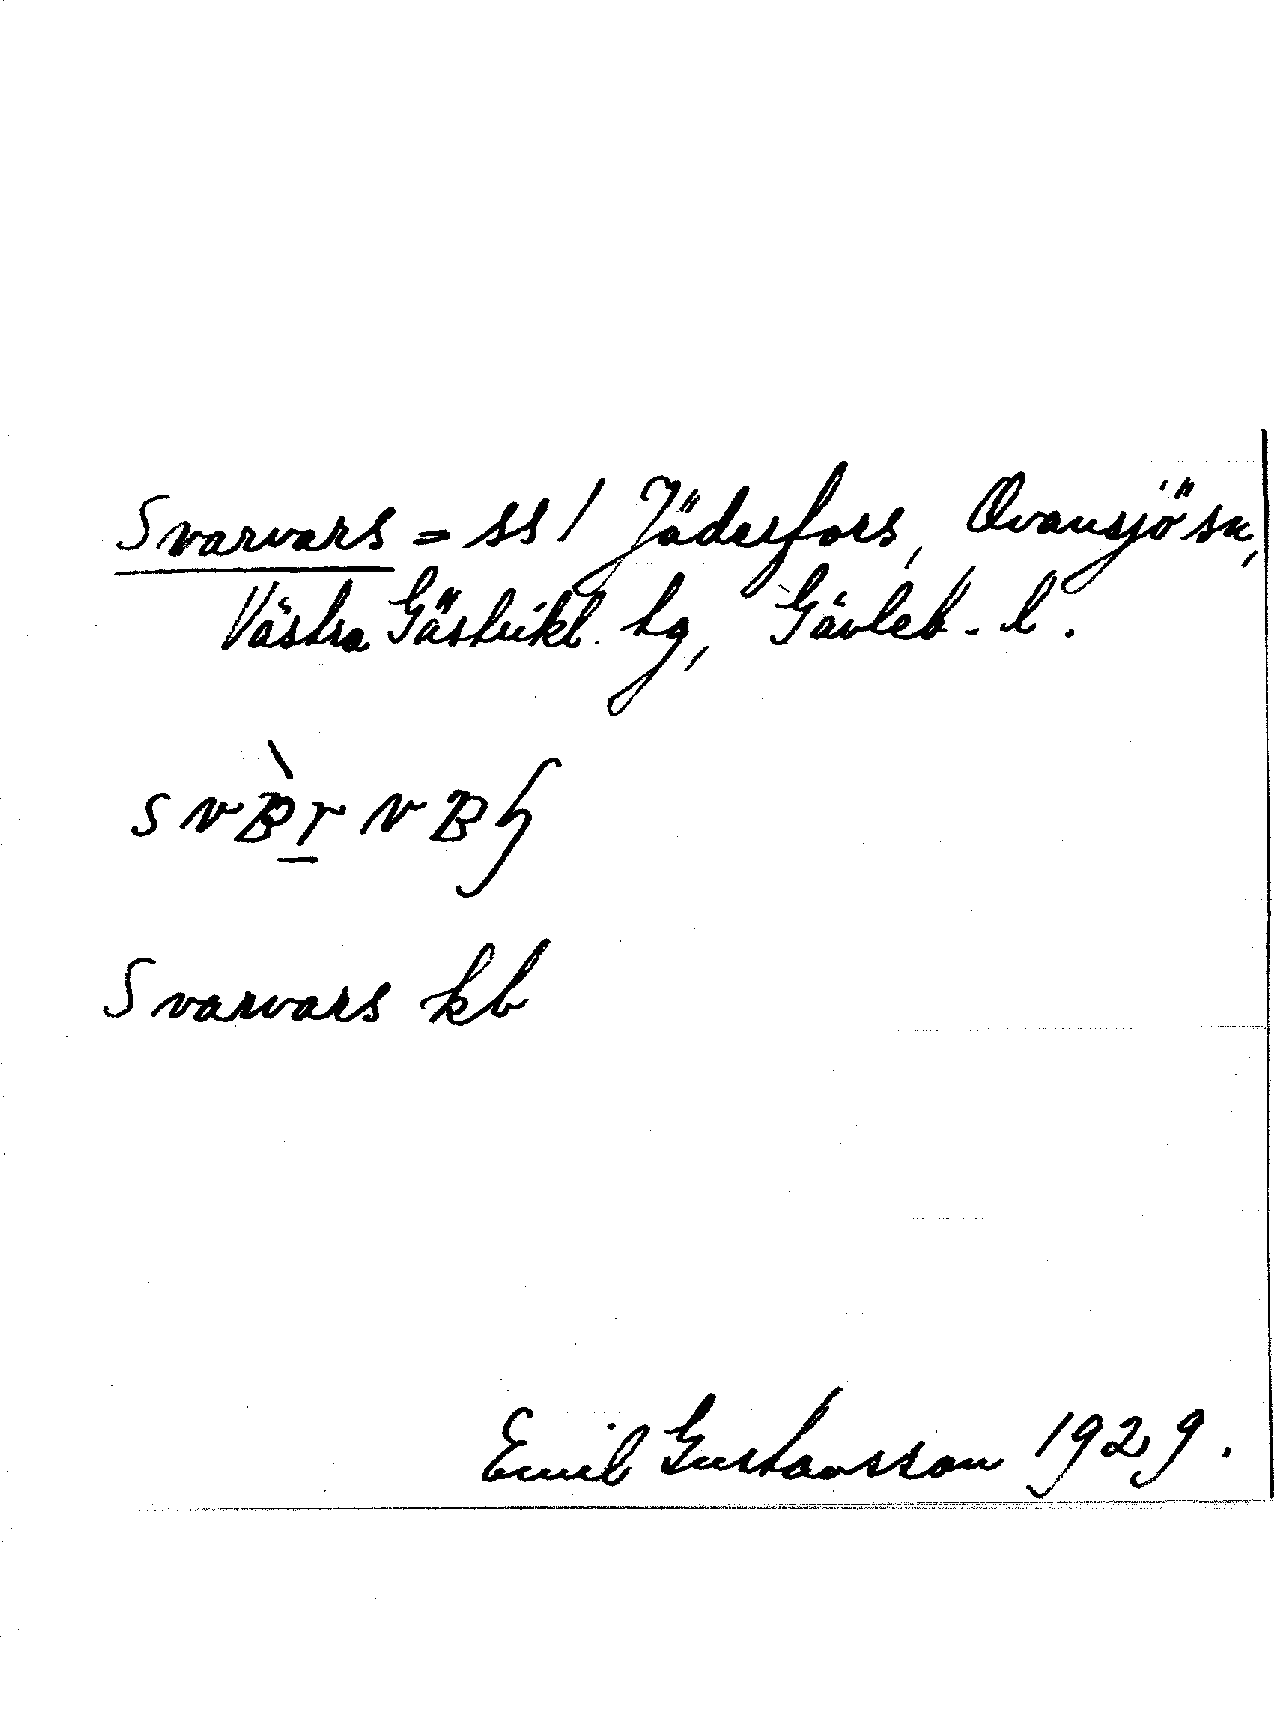 Svarvars = ss/ Jäderfors, Ovansjö sn,
Västra Gästrikl. tg, Gävleb. l.
Svarvars kb
Emil Gustavsson 1929.